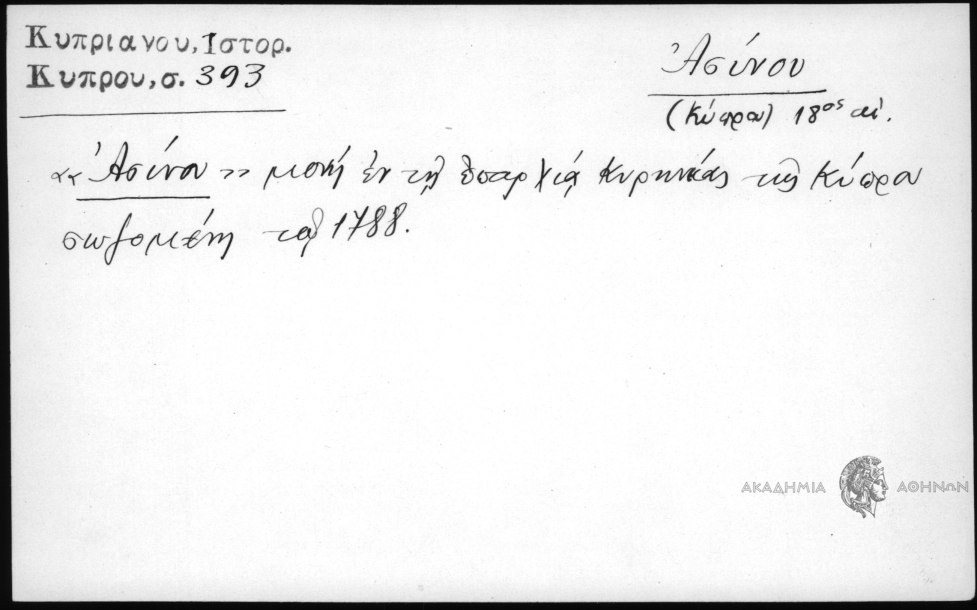 Κυπριανου, Ιστορ.
Κυπρου, σ. 393
Ἀσίνου
(Κύπρου) 18ος αἰ.
«Ἀσίνου» μονή ἐν τῇ ἐπαρχίᾳ Κυρηνείας τῆς Κύπρου
σωζομένη τῷ 1788.
ΑΚΑΔΗΜΙΑ ΑΘΗΝΩΝ